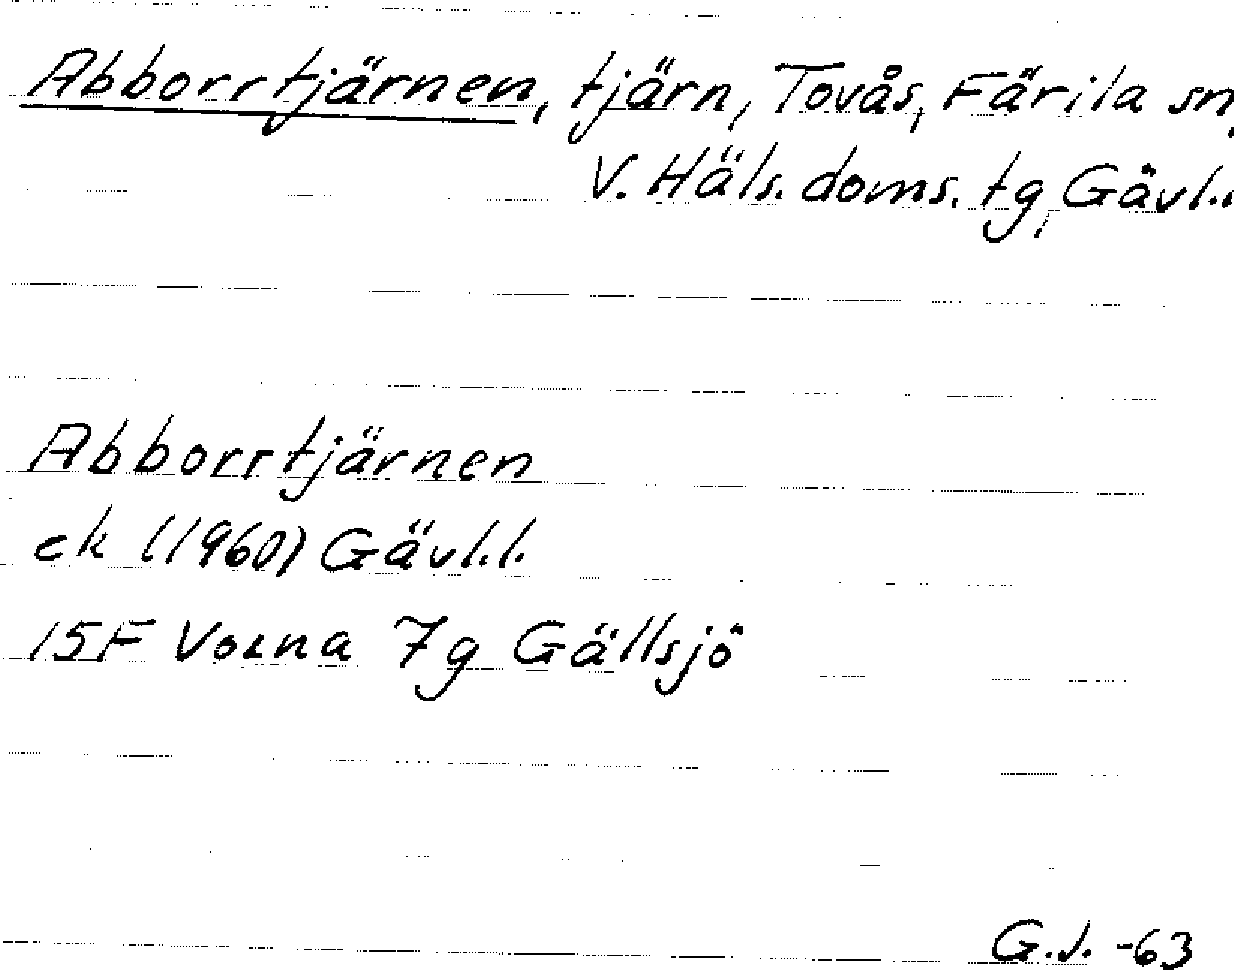 Abborrtjärnen, tjärn, Tovås, Färila sn,
V. Häls. doms. tg, Gävl.l.
Abborrtjärnen
ek (1960) Gävl.l.
15F Voxna 7g Gällsjö
G.J. -63